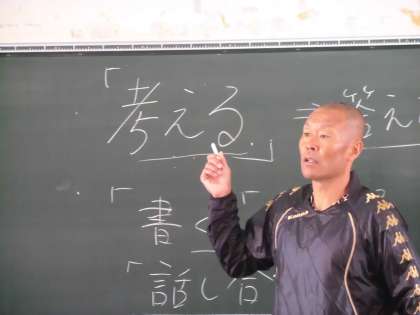 「考える」=答え
「書く「
「話し合